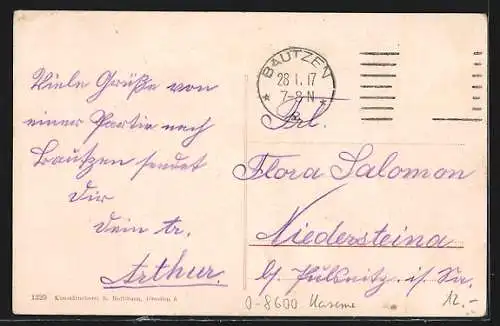 Viele Grüße von
einer Partie nach
Bautzen sendet
Dir
Dein tr.
Arthur.
BAUTZEN
28.1.17
7-8 N
* *
Frl.
Flora Salomon
Niedersteina
b/ Pulsnitz i/ Sa.
1329 Kunstdruckerei Dresden
0-8600 12.-